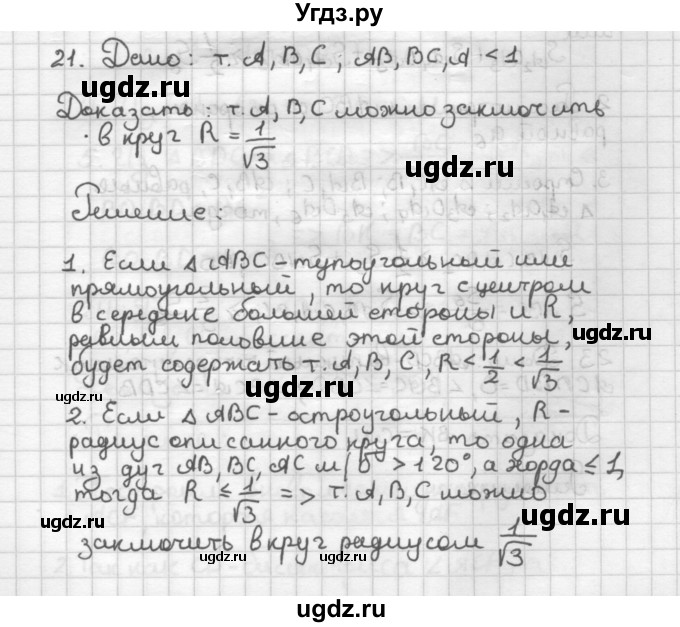 Угдз.ру
21. Дано: т. A, B, C; AB, BC, A < 1
ugdz.ru
Доказать: т. A, B, C можно заключить
в круг R = 1/√3
ugdz.ru
ugdz.ru
Решение:
1. Если △ ABC - тупоугольный или
прямоугольный, то круг с центром
в середине большей стороны и R,
ugdz.ru
равным половине этой стороны,
будет содержать т. A, B, C, R < 1/2 < 1/√3
ugdz.ru
2. Если △ ABC - остроугольный, R -
радиус описанного круга, то одна
из дуг AB, BC, AC м/б > 120°, а хорда ≤ 1,
ugdz.ru
тогда R ≤ 1/√3 => т. A, B, C можно
ugdz.ru
заключить в круг радиусом 1/√3
ugdz.ru
ugdz.ru
ugdz.ru